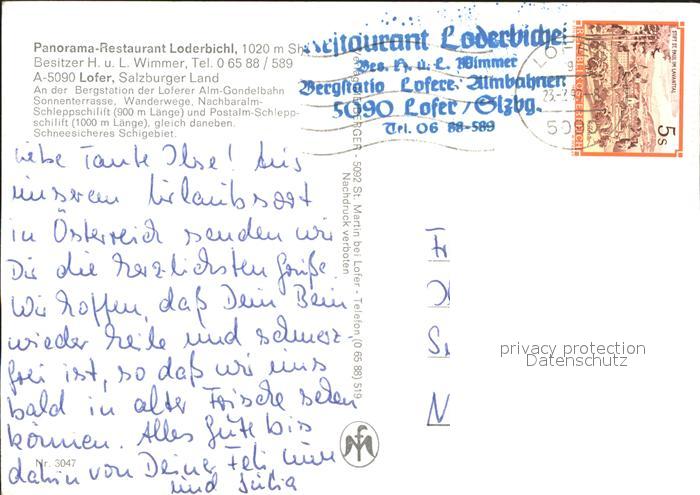 Panorama-Restaurant Loderbichl, 1020 m
Besitzer H. u. L. Wimmer, Tel. 0 65 88 / 589
A-5090 Lofer, Salzburger Land
An der Bergstation der Loferer Alm-Gondelbahn
Sonnenterrasse, Wanderwege, Nachbaralm-
Schleppschilift (900 m Länge) und Postalm-Schlepp-
schilift (1000 m Länge), gleich daneben.
Schneesicheres Schigebiet.
Restaurant Loderbichel
Bes. H. u. L. Wimmer
Bergstatio Lofere Almbahnen
5090 Lofer / Slzbg.
Tel. 06 88-589
5 S
REPUBLIK ÖSTERREICH
STIFT ST. PAUL IM LAVANTTAL
Liebe Tante Ilse! Aus
unserem Urlaubsort
in Österreich senden wir
Dir die herzlichsten Grüße.
Wir hoffen, daß Dein Bein
wieder heile und schmerz-
frei ist, so daß wir uns
bald in alter Frische sehen
können. Alles Gute bis
dahin von Deiner
und Julia
Nr. 3047
5092 St. Martin bei Lofer - Telefon (0 65 88) 519
Nachdruck verboten
privacy protection
Datenschutz